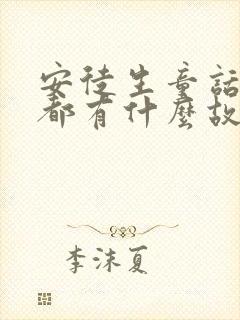 安徒生童話
都有什麼故
李沫夏